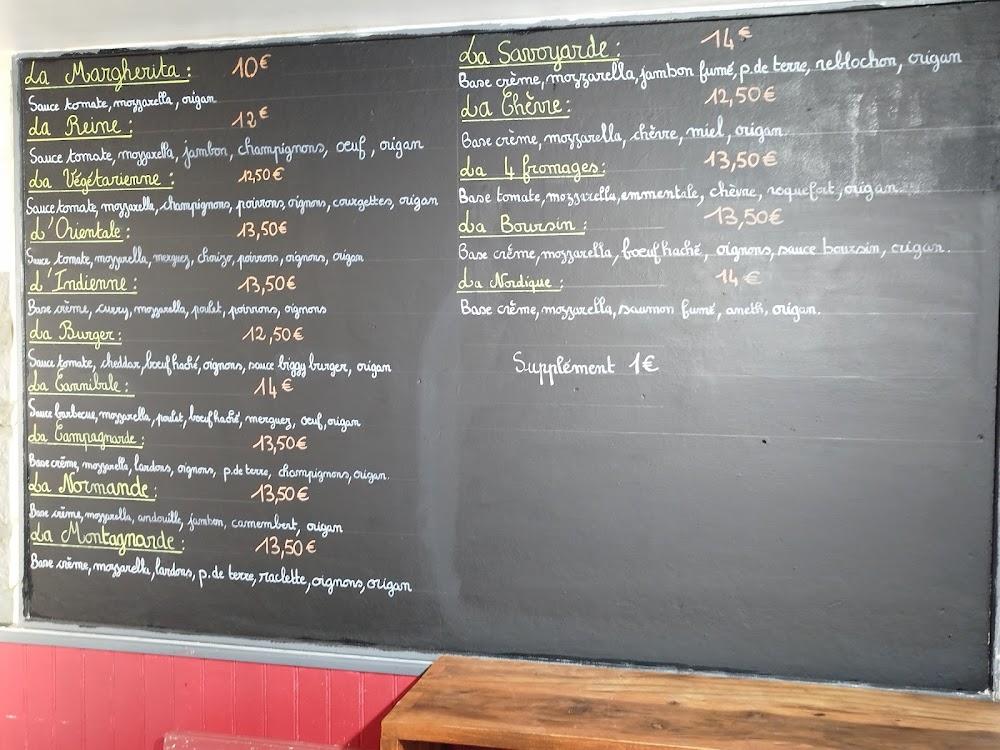 La Margherita : 10€
Sauce tomate, mozzarella, origan
La Reine : 12€
Sauce tomate, mozzarella, jambon, champignons, oeuf, origan
La Végétarienne : 12,50€
Sauce tomate, mozzarella, champignons, poivrons, oignons, courgettes, origan
L'Orientale : 13,50€
Sauce tomate, mozzarella, merguez, chorizo, poivrons, oignons, origan
L'Indienne : 13,50€
Base crème, curry, mozzarella, poulet, poivrons, oignons
La Burger : 12,50€
Sauce tomate, cheddar, boeuf haché, oignons, sauce biggy burger, origan
La Cannibale : 14€
Sauce barbecue, mozzarella, poulet, boeuf haché, merguez, oeuf, origan
La Campagnarde : 13,50€
Base crème, mozzarella, lardons, oignons, p.de terre, champignons, origan.
La Normande : 13,50€
Base crème, mozzarella, andouille, jambon, camembert, origan
La Montagnarde : 13,50€
Base crème, mozzarella, lardons, p.de terre, raclette, oignons, origan
La Savoyarde : 14€
Base crème, mozzarella, jambon fumé, p.de terre, reblochon, origan
La Chèvre : 12,50€
Base crème, mozzarella, chèvre, miel, origan.
La 4 fromages : 13,50€
Base tomate, mozzarella, emmentale, chèvre, roquefort, origan.
La Boursin : 13,50€
Base crème, mozzarella, boeuf haché, oignons, sauce boursin, origan.
La Nordique : 14€
Base crème, mozzarella, saumon fumé, aneth, origan.
Supplément 1€